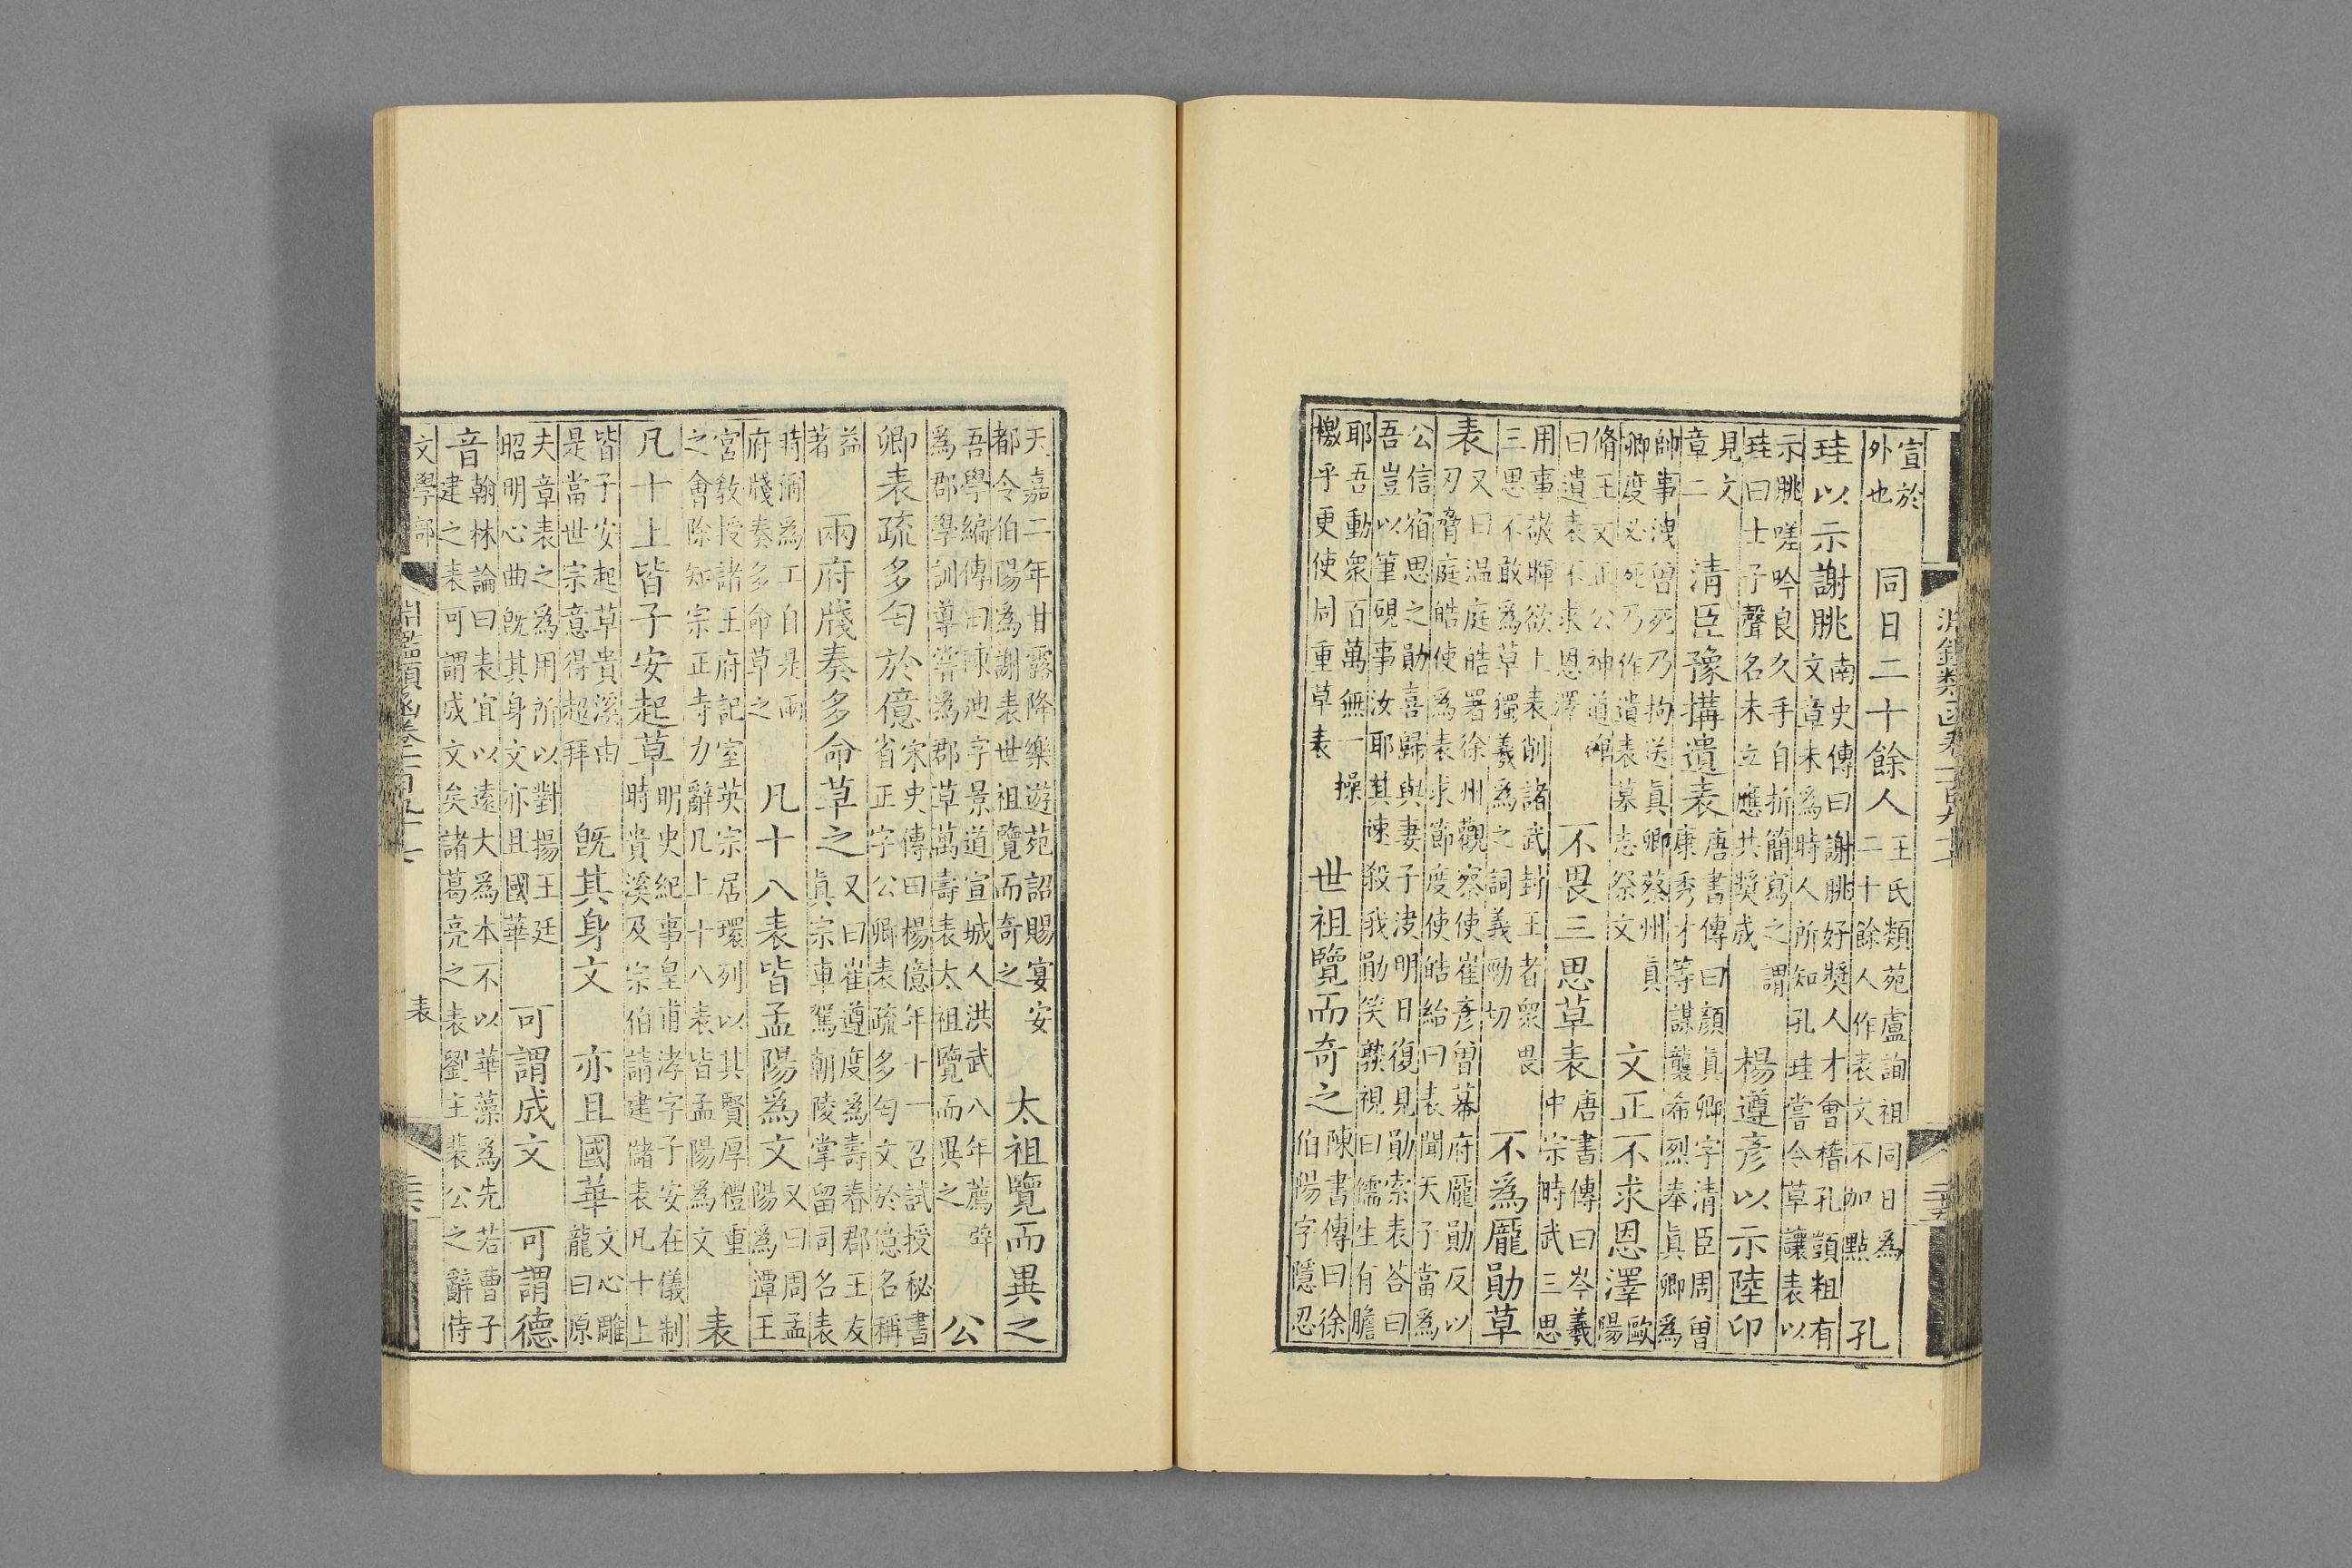 淵鑑類函卷一百九十七 二十五
宣於外也 同日二十餘人 王氏類苑盧詢祖同日爲二十餘人作表文不加點 孔
珪以示謝朓 南史傳曰謝朓好獎人才會稽孔顗粗有文章未爲時人所知孔珪嘗令草讓表以
示朓嗟吟良久手自折簡寫之謂珪曰士子聲名未立應共獎成 楊遵彥以示陸印
見文章二 清臣豫搆遺表 唐書傳曰顏眞卿字清臣周曾康秀才等謀襲希烈奉眞卿爲
帥事洩曾死乃拘送眞卿蔡州眞卿度必死乃作遺表墓志祭文 文正不求恩澤 歐陽
脩王文正公神道碑曰遺表不求恩澤 不畏三思草表 唐書傳曰岑羲中宗時武三思
用事敬暉欲上表削諸武封王者衆畏三思不敢爲草獨羲爲之詞義勁切 不爲龐勛草
表 又曰温庭皓署徐州觀察使崔彥曾幕府龐勛反以刃脅庭皓使爲表求節度使皓紿曰表聞天子當爲
公信宿思之勛喜歸與妻子決明日復見勛索表荅曰吾豈以筆硯事汝耶其速殺我勛笑孰視曰儒生有膽
耶吾動衆百萬無一操檄乎更使同重草表 世祖覽而奇之 陳書傳曰徐伯陽字隱忍
天嘉二年甘露降樂遊苑詔賜宴安都令伯陽爲謝表世祖覽而奇之 太祖覽而異之
吾學編傳曰陳迪字景道宣城人洪武八年薦辟爲郡學訓導嘗爲郡草萬壽表太祖覽而異之 公
卿表疏多匄於億 宋史傳曰楊億年十一召試授秘書省正字公卿表疏多匄文於億名稱
益著 兩府牋奏多命草之 又曰崔遵度爲壽春郡王友眞宗車駕朝陵掌留司名表
時稱爲工自是兩府牋奏多命草之 凡十八表皆孟陽爲文 又曰周孟陽爲潭王
宮教授諸王府記室英宗居環列以其賢厚禮重之會除知宗正寺力辭凡上十八表皆孟陽爲文 表
凡十上皆子安起草 明史紀事皇甫涍字子安在儀制時貴溪及宗伯請建儲表凡十上
皆子安起草貴溪由是當世宗意得超拜 旣其身文 亦且國華 文心雕龍曰原
夫章表之爲用所以對揚王廷昭明心曲旣其身文亦且國華 可謂成文 可謂德
音 翰林論曰表宜以遠大爲本不以華藻爲先若曹子建之表可謂成文矣諸葛亮之表劉主裴公之辭侍
文學部 淵鑑類函卷一百九十七 表 二十六